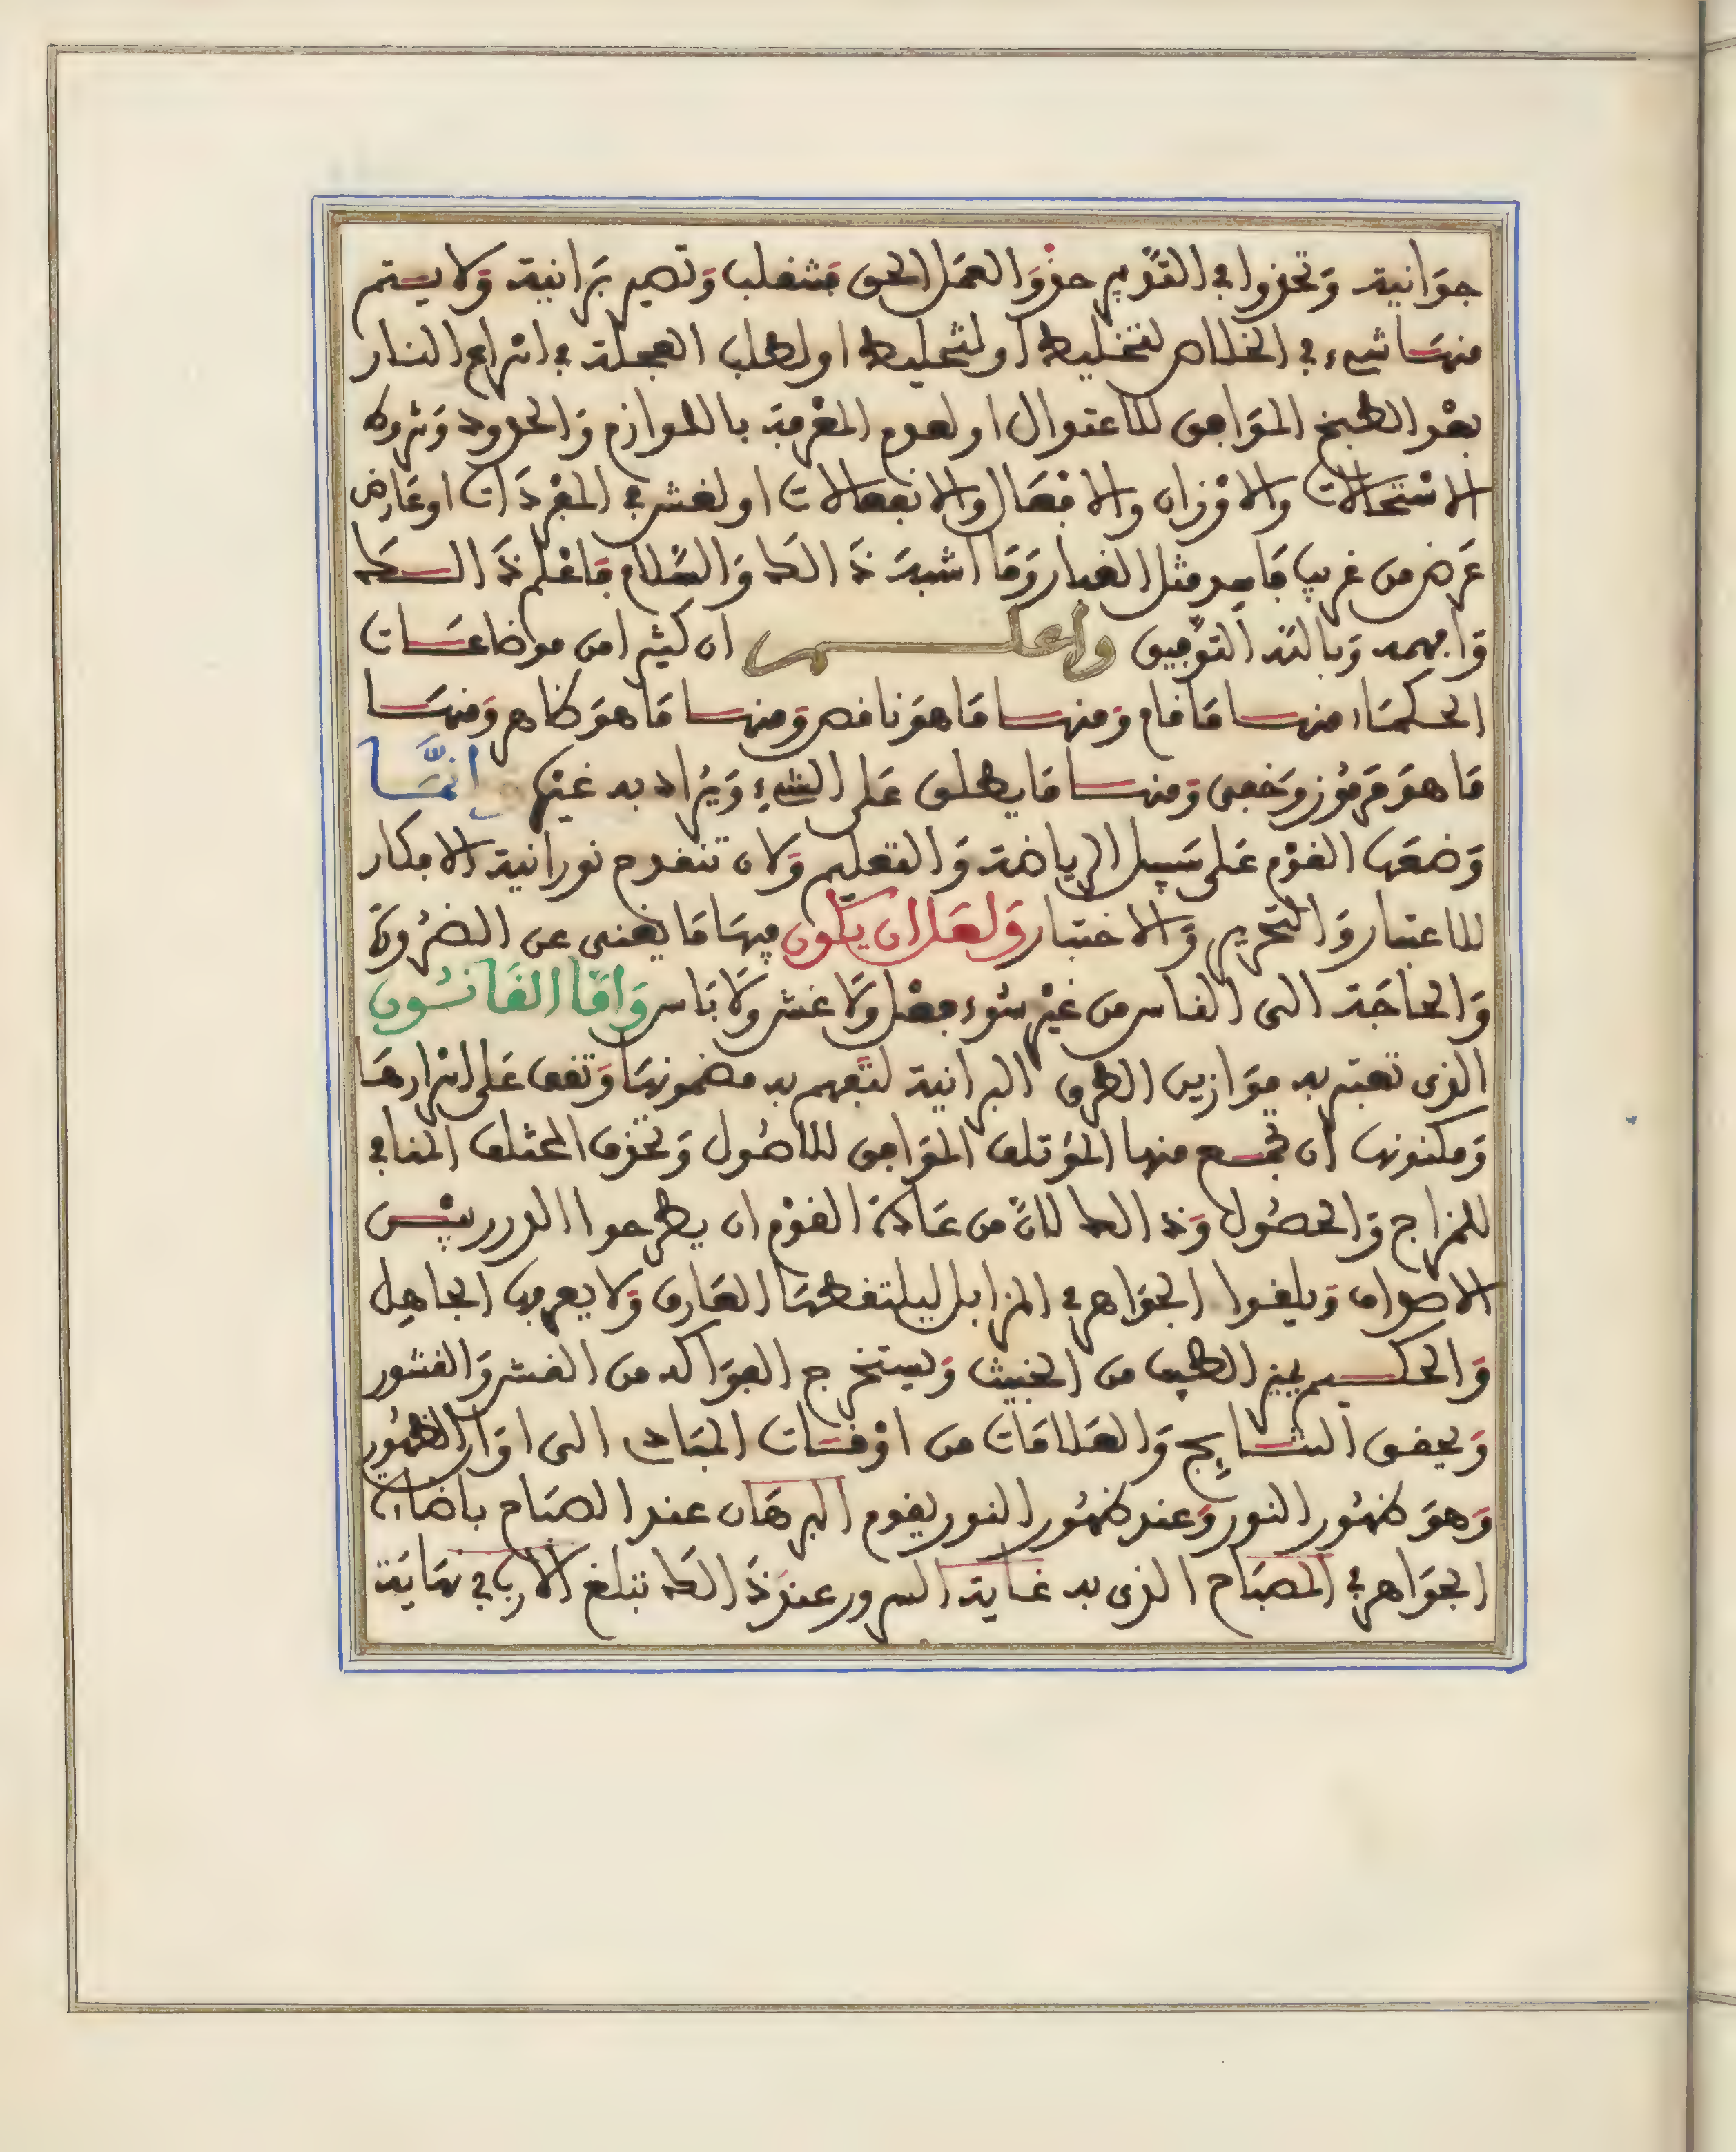 جوانية وتحذوا في التدبير حذو العمل الحق فتنقلب وتصير برانية ولا يستم
منها شيء في الخلاص لتخليط او لتحليط او لطلب العجلة في اسراع النار
بعد الطبخ الموافق للاعتدال او لعدم المعرفة باللوازم والحدود وشروط
الاستحالات والاوزان والافعال والانفعالات او لغش في المفردات او عارض
عرض من غريب فاسد مثل الغبار وما اشبه ذالك والسلام فاعلم ذالك
وافهمه وبالله التوفيق واعلم ان كثيرا من موضاعات
الحكماء منها ما قام ومنها ما هو ناقص ومنها ما هو ظاهر ومنها
ما هو مرموز وخفي ومنها ما يطلق على الشيء ويراد به غيره انما
وضعها القوم على سبيل الرياضة والتعليم ولان تنقدح نورانية الافكار
للاعتبار والتحرير والاختبار ولعل ان يكون فيها ما يغني عن الضرورة
والحاجة الى الناس من غير سوء فعل ولا غش ولا باس واما القانون
الذي تعتبر به موازين الطرق البرانية لتفهم به مضمونها وتقف على اسرارها
ومكنونها ان تجمع منها المؤتلف الموافق للاصول وتحذف المختلف المنافي
للمزاج والحصول وذالك لان من عادة القوم ان يطرحوا الدرر بين
الاصداف ويلقوا الجواهر في المزابل ليلتقطها العارف ولا يعرفها الجاهل
والحكيم يميز الطيب من الخبيث ويستخرج الفواكه من القش والقشور
ويحقق النتايج والعلامات من اوقات المباد الى اوان الظهور
وهو ظهور النور وعند ظهور النور يقوم البرهان عند الصباح باضاءة
الجواهر في المصباح الذي به غاية السرور عند ذالك تبلغ الارب في نهاية